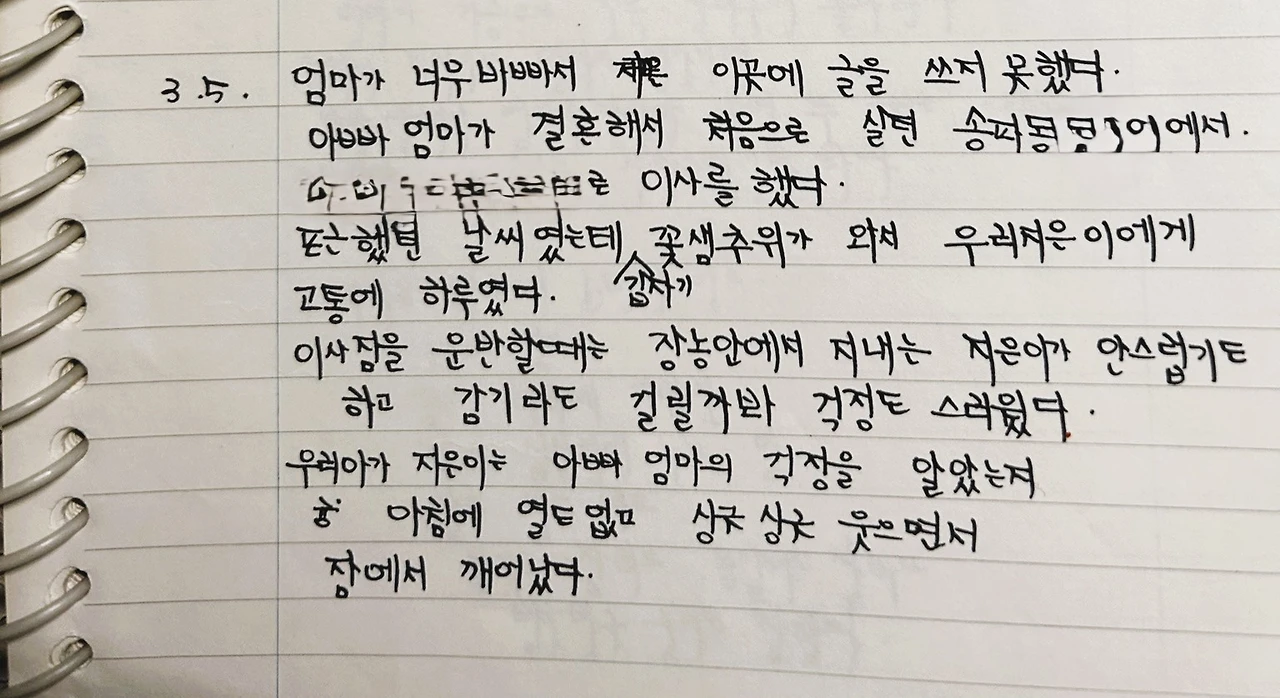 3.5. 엄마가 너무 바빠서 이곳에 글을 쓰지 못했다.
아빠 엄마가 결혼해서 처음으로 살면 송파동 에서.
로 이사를 했다.
포근했던 날씨였는데 꽃샘추위가 와서 우리지은이에게
갑자기
고통에 하루였다.
이사짐을 운반할때는 장농안에서 지내는 지은이가 안스럽기도
하고 감기라도 걸릴까봐 걱정도 스러웠다.
우리아가 지은이는 아빠 엄마의 걱정을 알았는지
아침에 열도 없고 싱긋싱긋 웃으면서
잠에서 깨어났다.